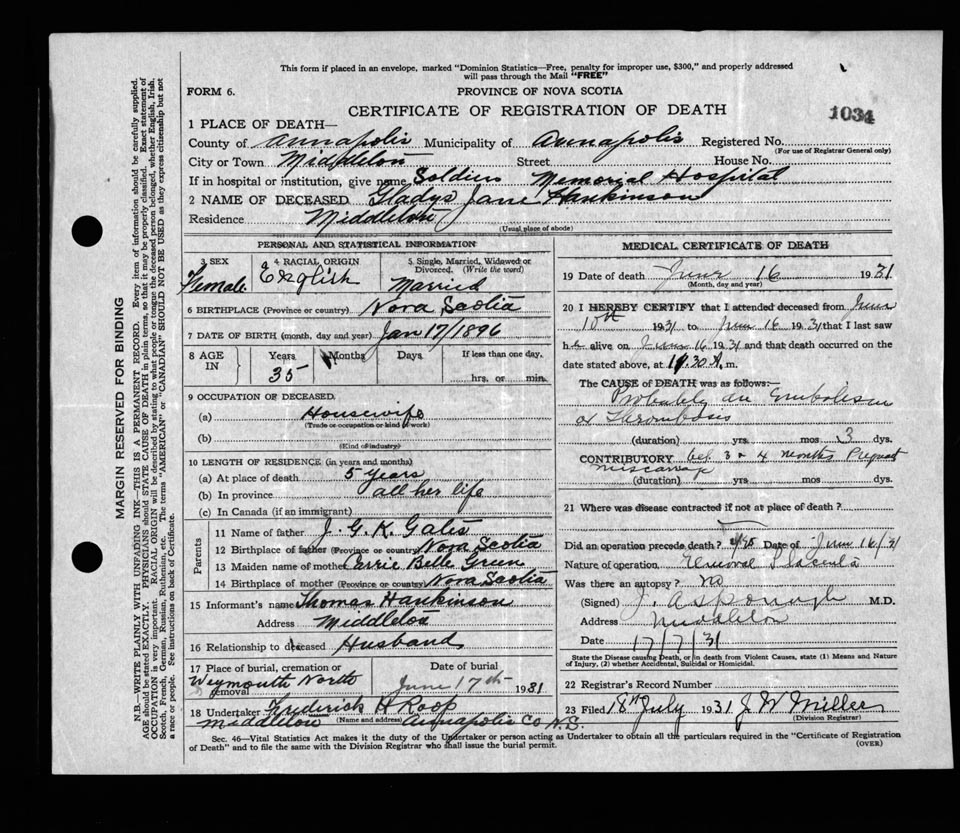 This form if placed in an envelope, marked "Dominion Statistics—Free, penalty for improper use, $300," and properly addressed
will pass through the Mail "FREE"
FORM 6.
PROVINCE OF NOVA SCOTIA
CERTIFICATE OF REGISTRATION OF DEATH
1034
1 PLACE OF DEATH—
County of Annapolis Municipality of Annapolis Registered No.
(For use of Registrar General only)
City or Town Middleton Street House No.
If in hospital or institution, give name Soldiers Memorial Hospital
2 NAME OF DECEASED Gladys Jane Hankinson
Residence Middleton
(Usual place of abode)
PERSONAL AND STATISTICAL INFORMATION
3 SEX
Female
4 RACIAL ORIGIN
English
5 Single, Married, Widowed or
Divorced. (Write the word)
Married
6 BIRTHPLACE (Province or country) Nova Scotia
7 DATE OF BIRTH (month, day and year) Jan 17/1896
8 AGE IN Years Months Days If less than one day,
35 hrs. or min.
9 OCCUPATION OF DECEASED
(a) Housewife
(Trade or occupation or kind of work)
(b)
(Kind of industry)
10 LENGTH OF RESIDENCE (in years and months)
(a) At place of death 5 years
(b) In province all her life
(c) In Canada (if an immigrant)
Parents
11 Name of father J. G. K. Gates
12 Birthplace of father (Province or country) Nova Scotia
13 Maiden name of mother Carrie Belle Green
14 Birthplace of mother (Province or country) Nova Scotia
15 Informant's name Thomas Hankinson
Address Middleton
16 Relationship to deceased Husband
17 Place of burial, cremation or
removal
Weymouth North
Date of burial
June 17th 1931
18 Undertaker Frederick H Roop
Middleton (Name and address) Annapolis Co N.S.
MEDICAL CERTIFICATE OF DEATH
19 Date of death June 16 1931
(Month, day and year)
20 I HEREBY CERTIFY that I attended deceased from June
10th 1931 to June 16 1931 that I last saw
her alive on June 16 1931 and that death occurred on the
date stated above, at 11.30 A. m.
The CAUSE of DEATH was as follows:—
Probably an Embolism
or Thrombosis
(duration) yrs. mos 3 dys.
CONTRIBUTORY bet. 3 & 4 months Pregnant
miscarriage
(duration) yrs. mos dys.
21 Where was disease contracted if not at place of death?
Did an operation precede death? yes Date of June 16/31
Nature of operation Removal Placenta
Was there an autopsy? No
(Signed) M.D.
Address Middleton
Date 17/7/31
State the Disease causing Death, or in death from Violent Causes, state (1) Means and Nature
of Injury, (2) whether Accidental, Suicidal or Homicidal.
22 Registrar's Record Number
23 Filed 18th July 1931 J W Miller
(Division Registrar)
Sec. 46—Vital Statistics Act makes it the duty of the Undertaker or person acting as Undertaker to obtain all the particulars required in the "Certificate of Registration
of Death" and to file the same with the Division Registrar who shall issue the burial permit.
(OVER)
MARGIN RESERVED FOR BINDING
N.B.—WRITE PLAINLY WITH UNFADING INK—THIS IS A PERMANENT RECORD. Every item of information should be carefully supplied.
AGE should be stated EXACTLY. PHYSICIANS should STATE CAUSE OF DEATH in plain terms, so that it may be properly classified. Exact statement of
OCCUPATION is very important. RACIAL ORIGIN will be described by stating to what people or tongue the deceased person belonged, whether English, Irish,
Scotch, French, German, Russian, Ruthenian, etc. The terms "AMERICAN" or "CANADIAN" SHOULD NOT BE USED as they express citizenship but not
a race or people. See instructions on back of Certificate.